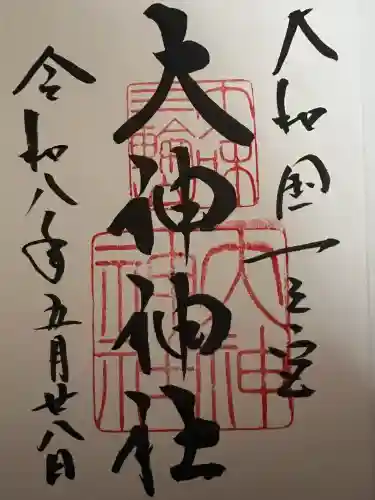 大和国一之宮
大神神社
令和八年五月廿八日
三輪
大神
神社